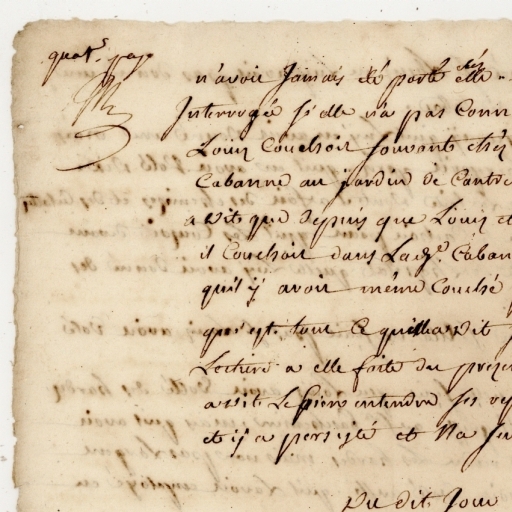 quat.e page
n'avoir Jamais été porté chés elle
Interrogée sy elle n'a pas Conn
Louis Couchoit souvant chés
Cabanne au jardin de Cantre
a dit que depuis que Louis et
il Couchoit dans Lad.e Caban
quil y avoit même Couché
qui est tout Ce quelle a dit
Lecture a elle faite du presen
a dit Le bien entendre ses rep
et y a persisté et n'a Su
Du dit Jour